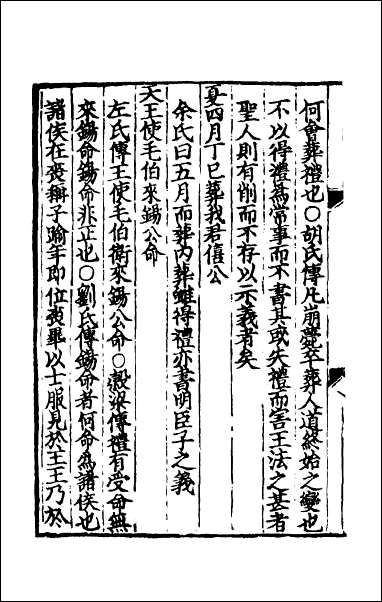 何會葬禮也〇胡氏傳凡崩薨卒葬人道終始之變也
不以得禮爲常事而不書其或失禮而害王法之甚者
聖人則有削而不存以示義者矣
夏四月丁巳葬我君僖公
余氏曰五月而葬内葬雖得禮亦書明臣子之義
天王使毛伯來錫公命
左氏傳王使毛伯衛來錫公命〇穀梁傳禮有受命無
來錫命錫命非正也〇劉氏傳錫命者何命爲諸侯也
諸侯在喪稱子踰年即位喪畢以士服見於王王乃於